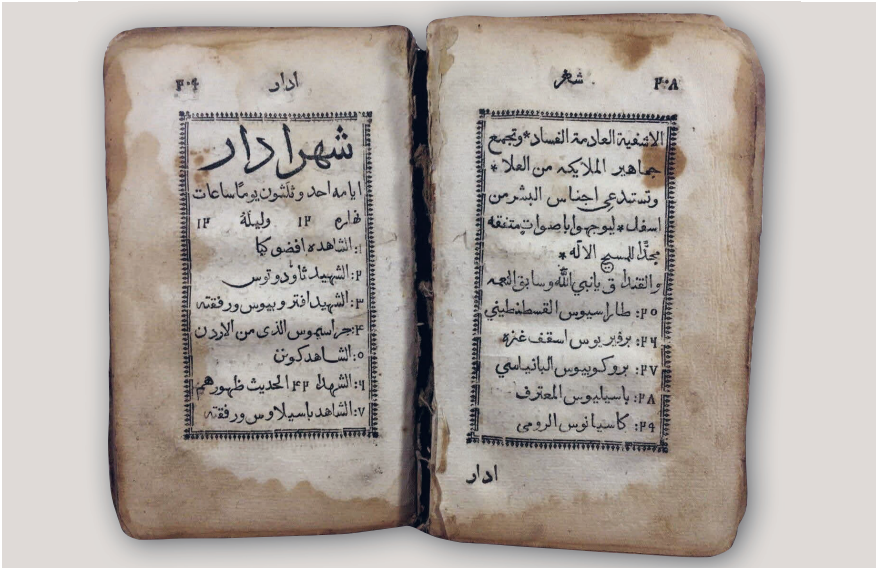 ٢٠٨ شهر
الاشفية العادمة الفساد * وتجمع
جماهير الملايكه من العلا *
وتستدعي اجناس البشر من
اسفل * ليوجهوا باصوات متفقه
مجدًا للمسيح الاله *
والقنداق يانبي الله وسابق النعمه
٢٥: طاراسيوس القسطنطيني
٢٦: برفيريوس اسقف غزه
٢٧: بروكوبيوس البانياسي
٢٨: باسيليوس المعترف
٢٩: كاسيانوس الرومي
ادار
ادار ٢٠٩
شهر ادار
ايامه احد وثلثون يومًا ساعات
نهاره ١٢ وليلة ١٢
١: الشاهده افضوكيا
٢: الشهيد ثاودوتوس
٣: الشهيد افتروبيوس ورفقته
٤: جراسيموس الذي من الاردن
٥: الشاهد كونن
٦: الشهدا ٤٢ الحديث ظهورهم
٧: الشاهد باسيلاوس ورفقته